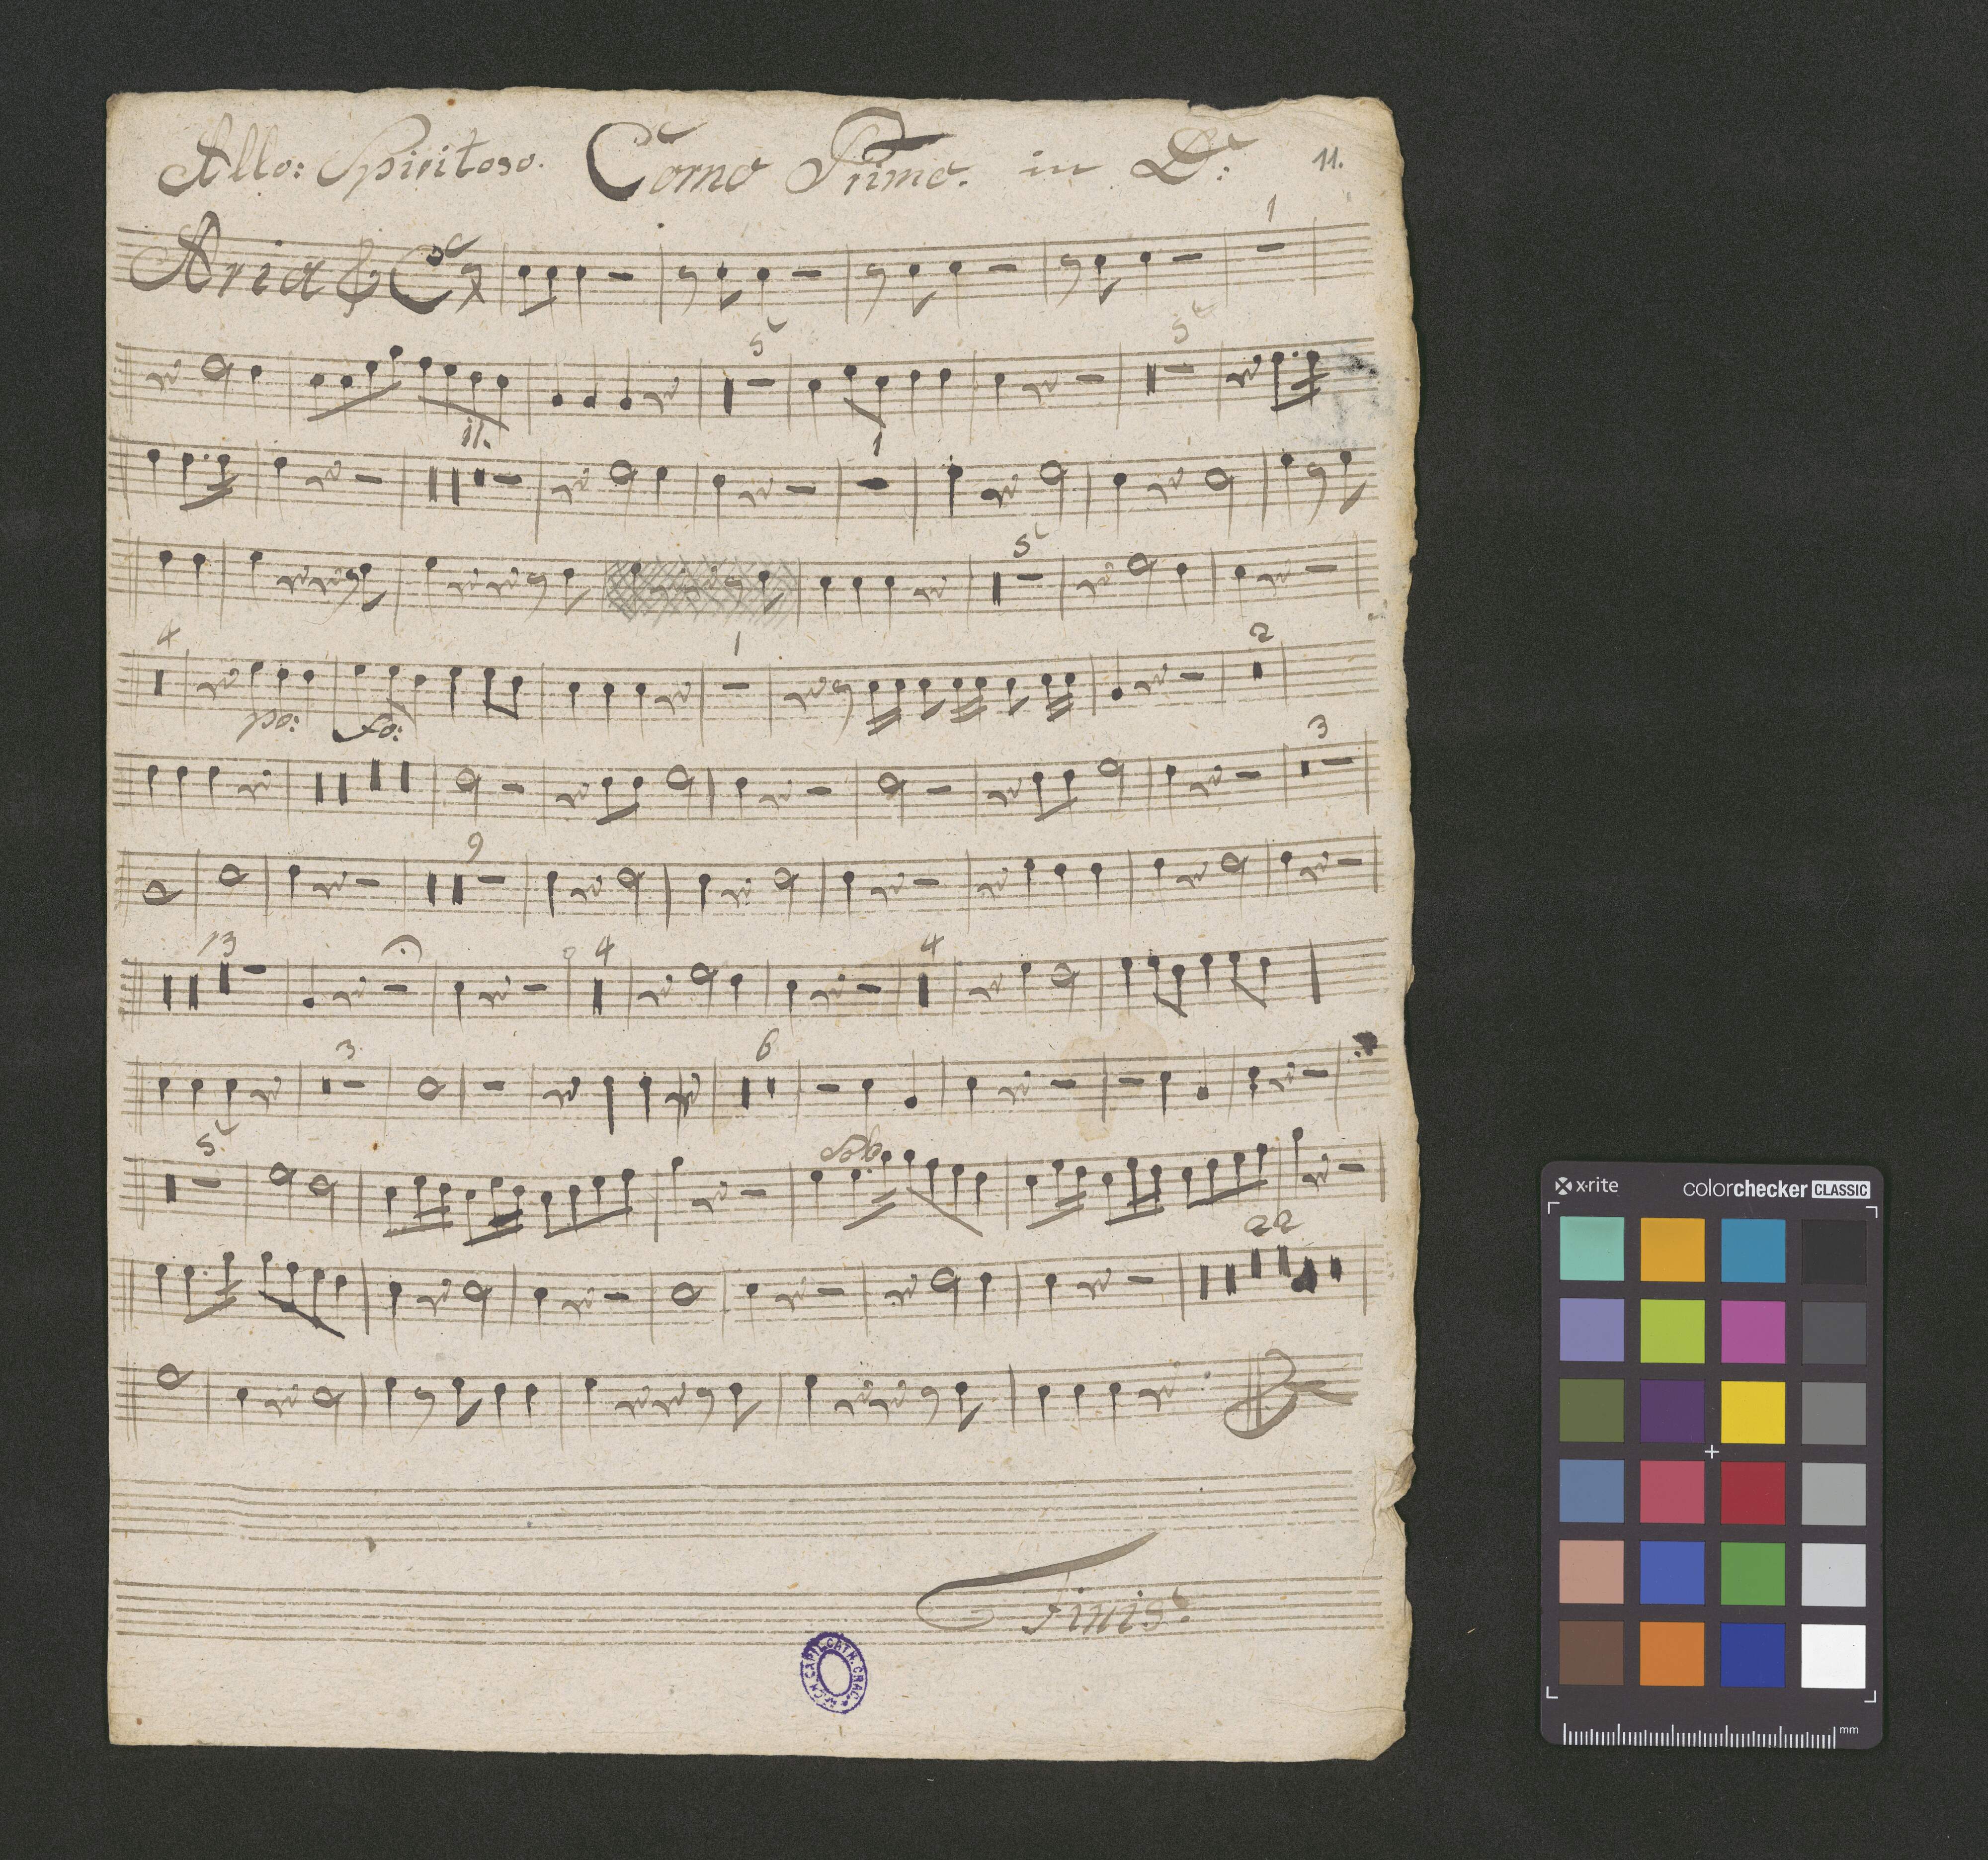 Allo: Spiritoso. Corno Primo. in D: 11.
Aria 1
5 5
11. 1
5
4 1 2
po: fo:
3
9
13 4 4
3 6
5 Solo
22
Finis
ARCH. CAPIT. CATH. CRAC.
x-rite colorchecker CLASSIC
mm